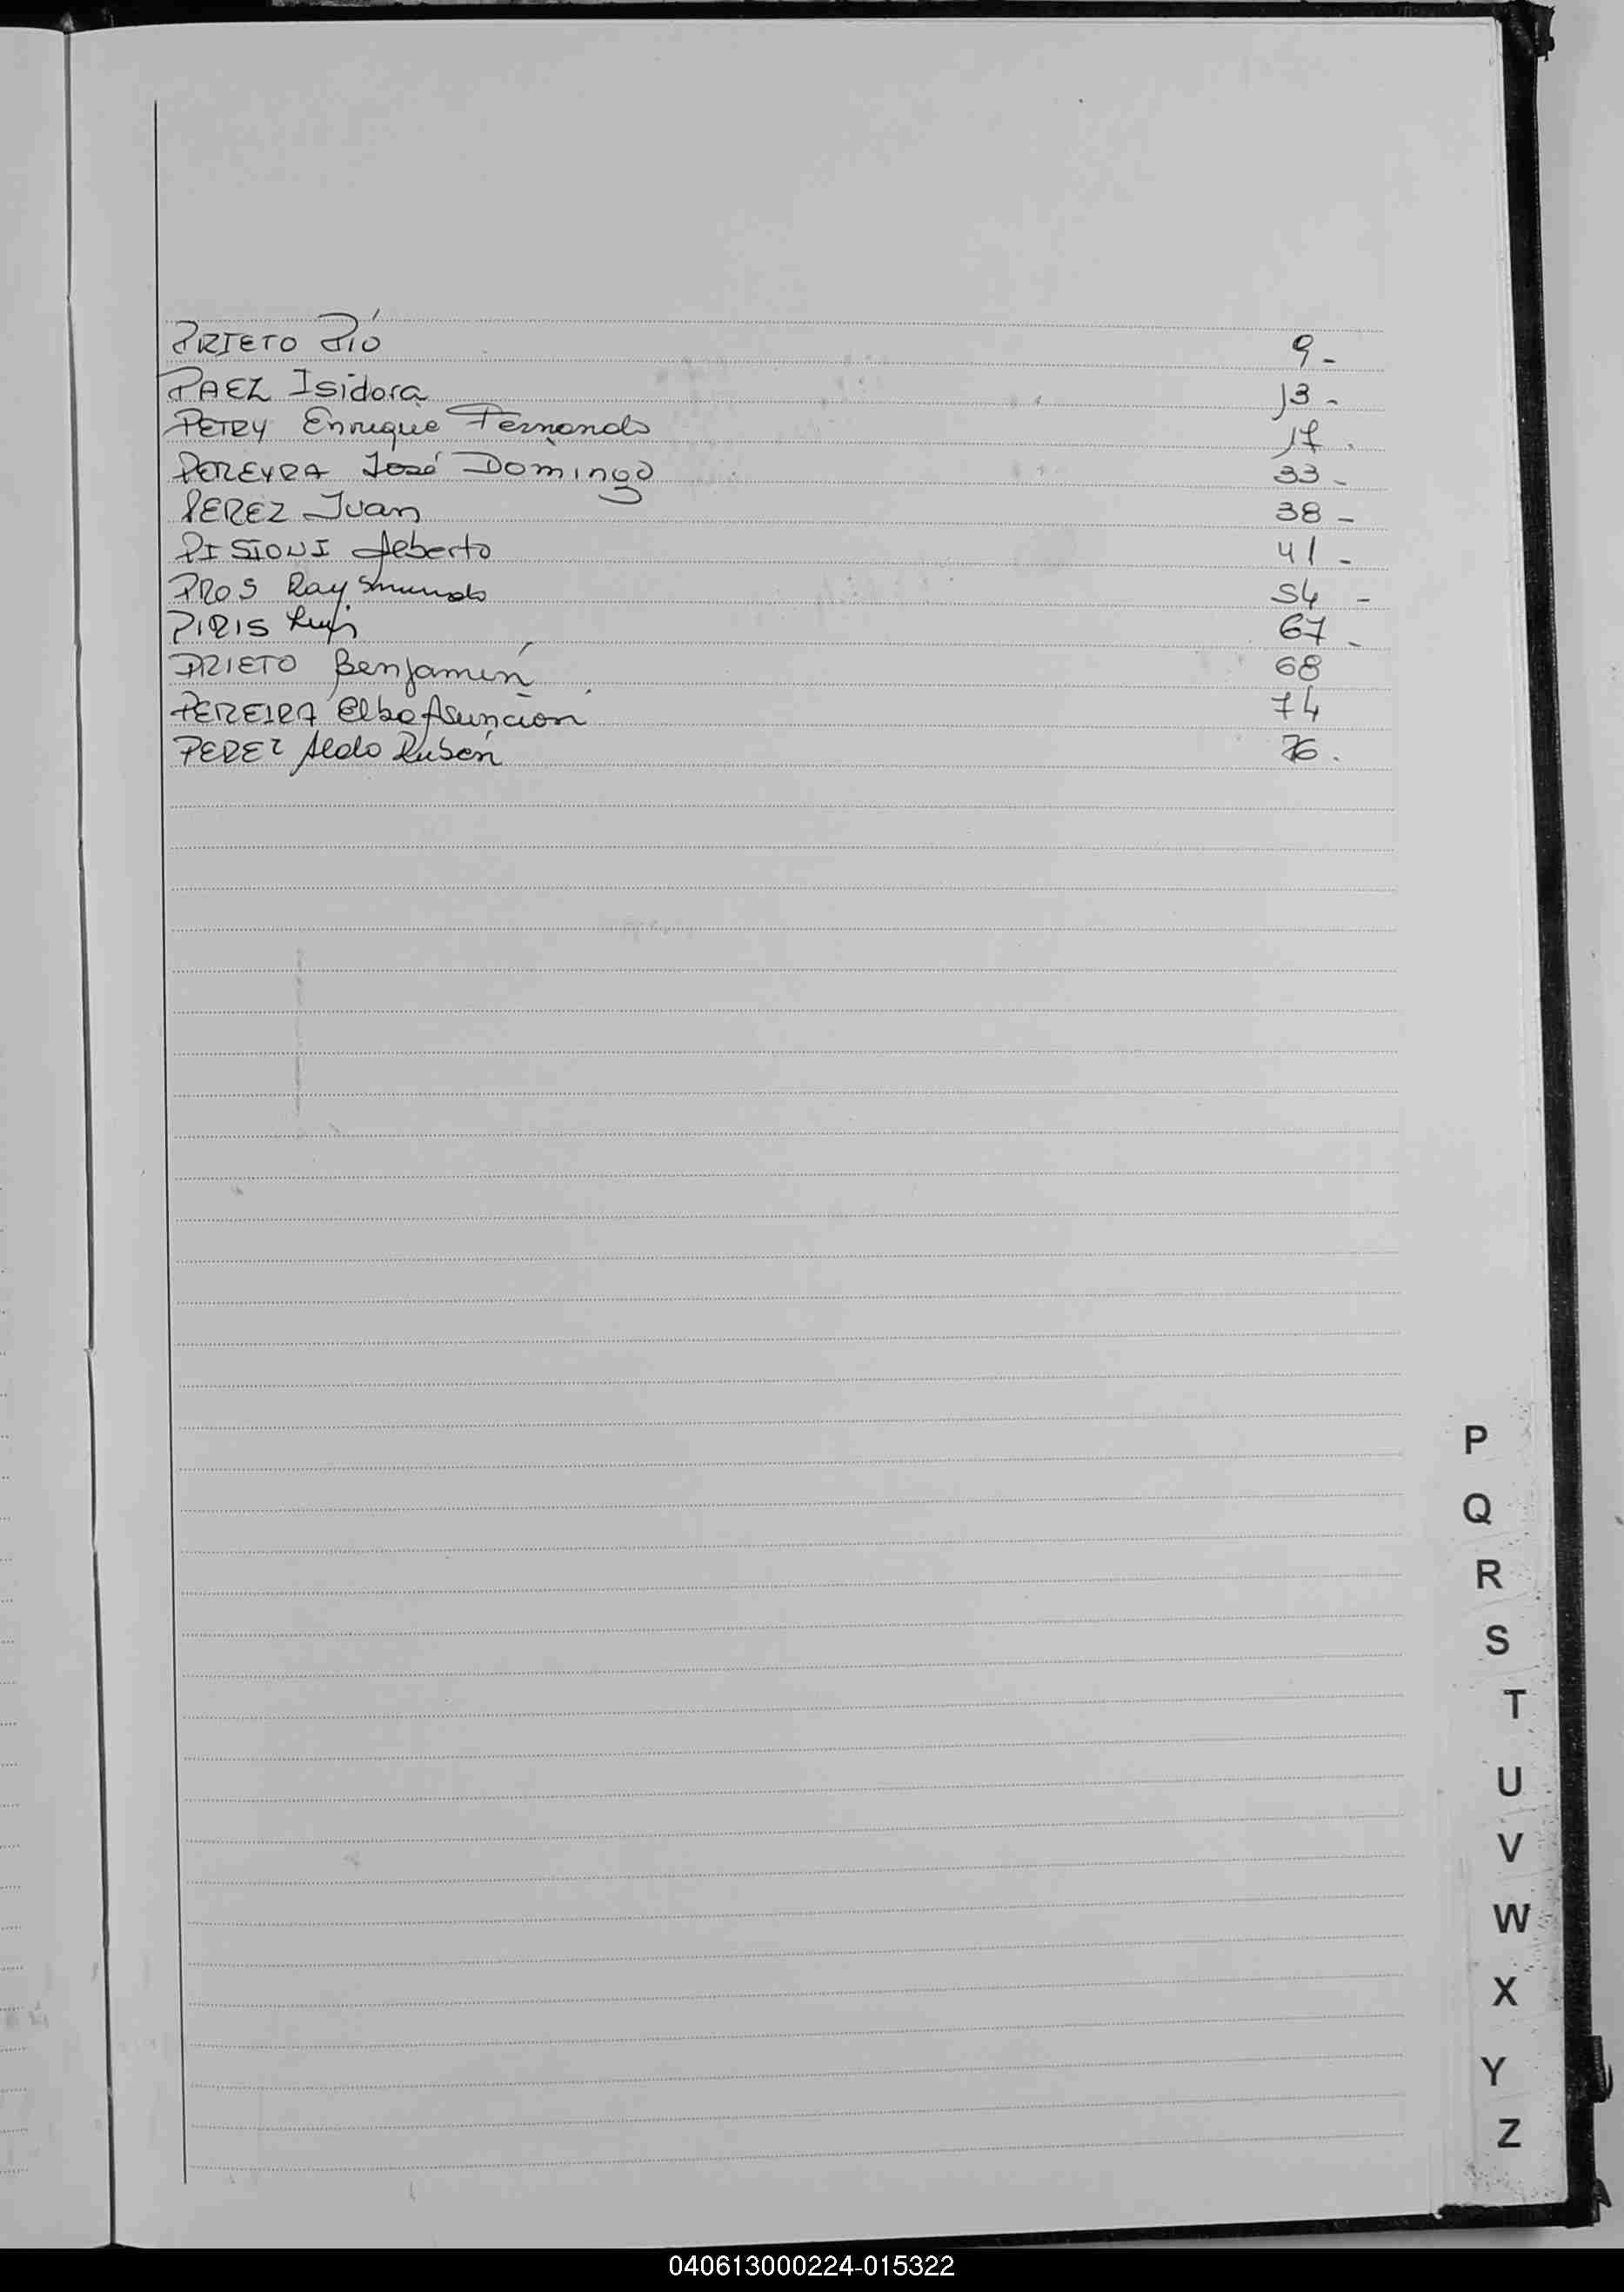 PRIETO Pío 9-
PAEZ Isidora 13-
PETRY Enrique Fernando 17.
PEREYRA José Domingo 33-
PEREZ Juan 38-
PISIONI Alberto 41-
PROS Raymundo 54-
PIRIS Luis 67-
PRIETO Benjamín 68
PEREIRA Elba Asunción 74
PEREZ Aldo Rubén 76.
P
Q
R
S
T
U
V
W
X
Y
Z
040613000224-015322